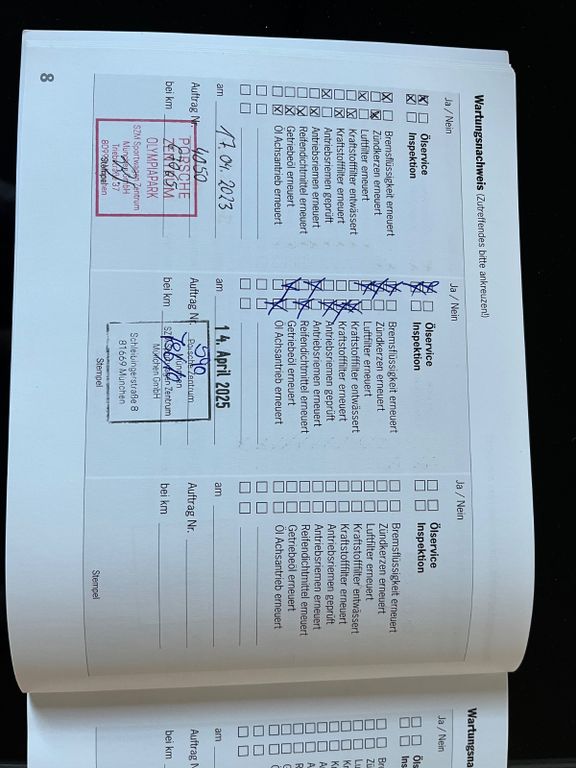 Wartungsnachweis (Zutreffendes bitte ankreuzen!)
Ja / Nein
Ölservice
Inspektion
Bremsflüssigkeit erneuert
Zündkerzen erneuert
Luftfilter erneuert
Kraftstofffilter entwässert
Kraftstofffilter erneuert
Antriebsriemen geprüft
Antriebsriemen erneuert
Reifendichtmittel erneuert
Getriebeöl erneuert
Öl Achsantrieb erneuert
am 17.04.2023
Auftrag Nr. 4050
bei km
PORSCHE
ZENTRUM
OLYMPIAPARK
SZM Sportwagen Zentrum
München GmbH
80937 München
Stempel
Ja / Nein
Ölservice
Inspektion
Bremsflüssigkeit erneuert
Zündkerzen erneuert
Luftfilter erneuert
Kraftstofffilter entwässert
Kraftstofffilter erneuert
Antriebsriemen geprüft
Antriebsriemen erneuert
Reifendichtmittel erneuert
Getriebeöl erneuert
Öl Achsantrieb erneuert
am 14. April 2025
Auftrag Nr.
bei km
Porsche Zentrum
München GmbH
81669 München
Stempel
Ja / Nein
Ölservice
Inspektion
Bremsflüssigkeit erneuert
Zündkerzen erneuert
Luftfilter erneuert
Kraftstofffilter entwässert
Kraftstofffilter erneuert
Antriebsriemen geprüft
Antriebsriemen erneuert
Reifendichtmittel erneuert
Getriebeöl erneuert
Öl Achsantrieb erneuert
am
Auftrag Nr.
bei km
Stempel
8
Wartungsna
Ja / Nein
Öls
Insp
Bre
Zü
Lu
Kra
Kra
Ant
Ant
Reif
Getr
Öl A
am
Auftrag N
bei km